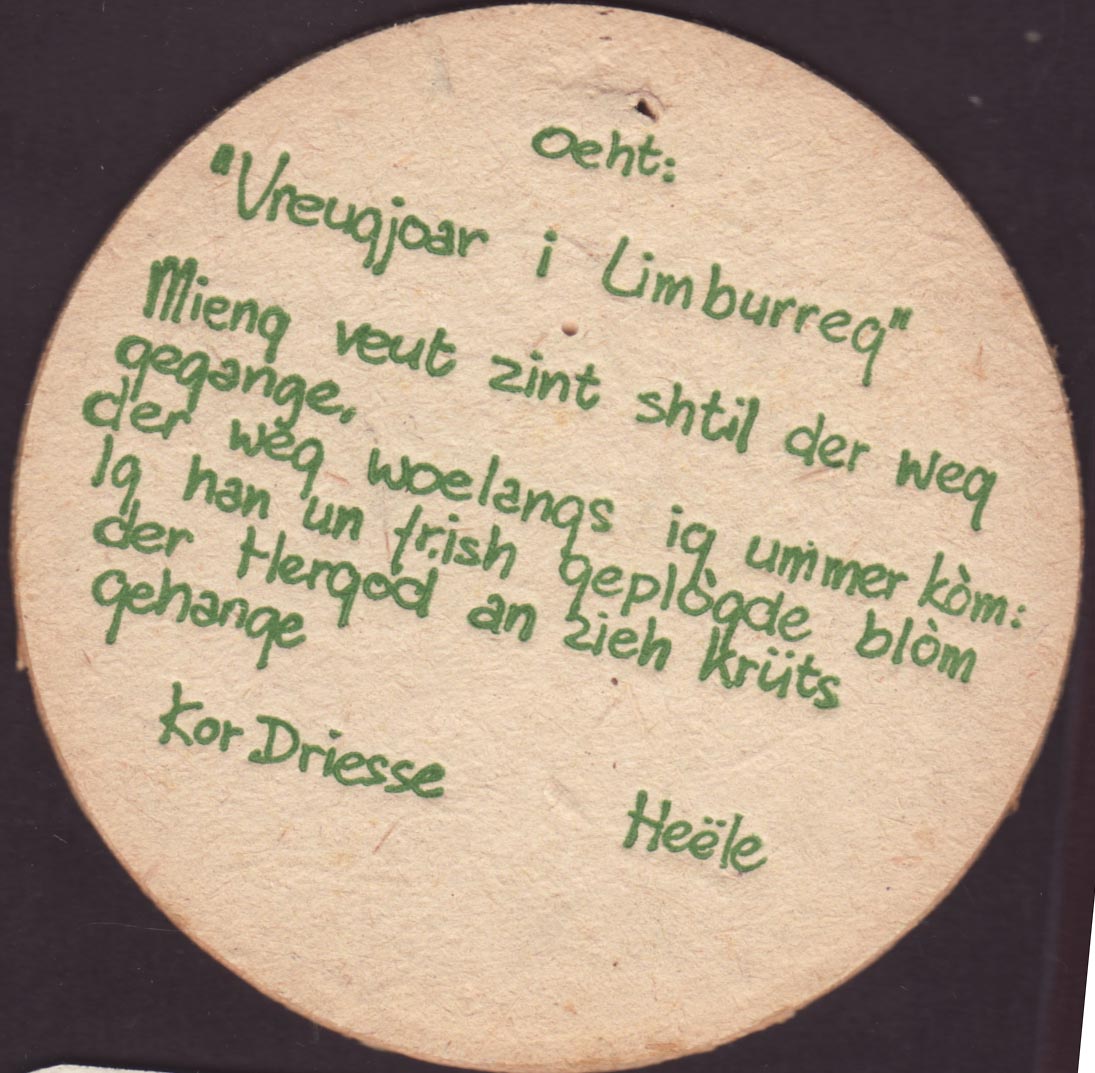 Oeht:
"Vreugjoar i Limburreg"
Mieng veut zint shtil der weg
gegange,
der wèg woelangs ig ummer kòm:
Ig han un frish geplògde blòm
der Hergod an zieh krüts
gehange
Kor Driesse
Heële